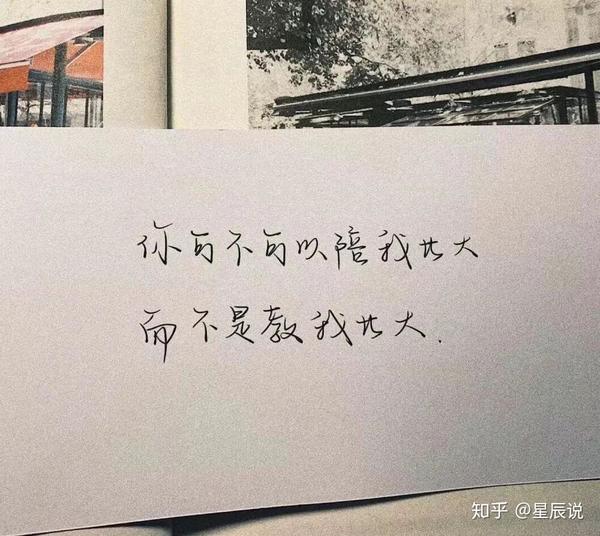 你可不可以陪我长大
而不是教我长大.
知乎 @星辰说